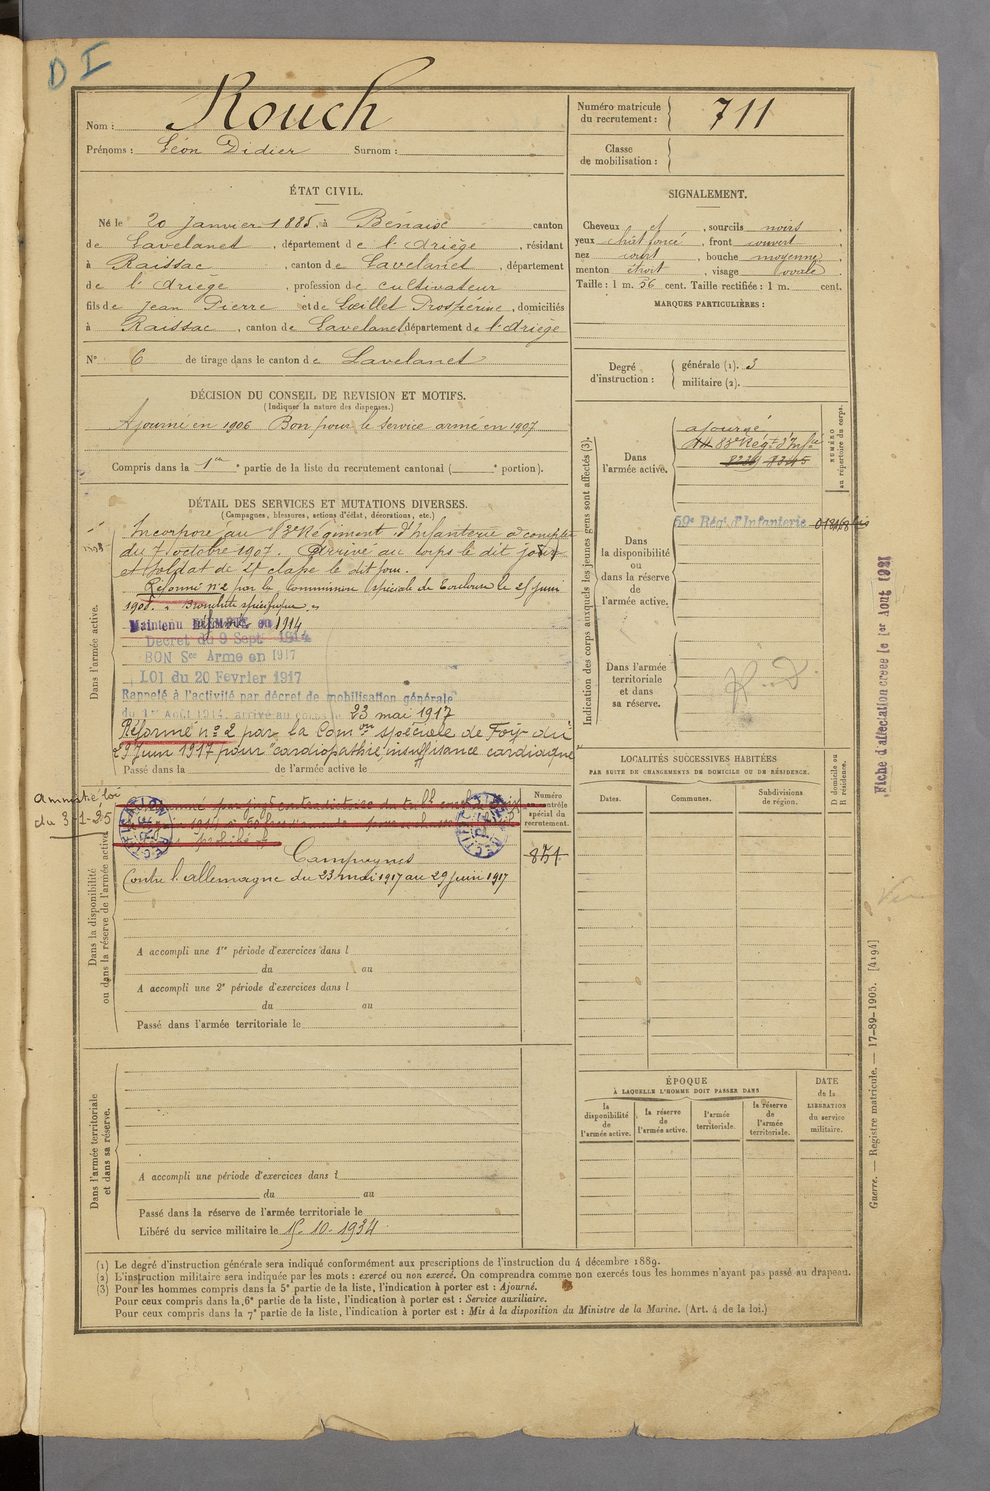 D I
Nom : Rouch
Prénoms : Léon Didier Surnom :
Numéro matricule du recrutement : 711
Classe de mobilisation :
ÉTAT CIVIL.
Né le 20 Janvier 1885, à Bénaix canton
de Lavelanet, département de l'Ariège, résidant
à Raissac, canton de Lavelanet, département
de l'Ariège, profession de cultivateur
fils de Jean Pierre et de Lœillet Prospérine, domiciliés
à Raissac, canton de Lavelanet département de l'Ariège
N° 6 de tirage dans le canton de Lavelanet
SIGNALEMENT.
Cheveux et, sourcils noirs,
yeux chât foncé, front couvert
nez court, bouche moyenne,
menton étroit, visage ovale,
Taille : 1 m. 56 cent. Taille rectifiée : 1 m. cent.
MARQUES PARTICULIÈRES :
Degré d'instruction :
générale (1). 3
militaire (2).
DÉCISION DU CONSEIL DE REVISION ET MOTIFS.
(Indiquer la nature des dispenses.)
Ajourné en 1906 Bon pour le service armé en 1907
Compris dans la 1re partie de la liste du recrutement cantonal ( e portion).
DÉTAIL DES SERVICES ET MUTATIONS DIVERSES.
(Campagnes, blessures, actions d'éclat, décorations, etc.)
Dans l'armée active.
Incorporé au 83e Régiment d'Infanterie à compter
du 7 octobre 1907. Arrivé au corps le dit jour
et soldat de 2e classe le dit jour.
Réformé n°2 par la Commission spéciale de Toulouse le 25 juin
1908. Bronchite spécifique
Maintenu réformé en 1914
Decret du 9 Sept 1914
BON Sce Armé en 1917
LOI du 20 Fevrier 1917
Rappelé à l'activité par décret de mobilisation générale
du 1er Août 1914. arrivé au corps le 23 mai 1917
Réformé n°2 par la Comon spéciale de Foix du
29 Juin 1917 pour "cardiopathie, insuffisance cardiaque
Passé dans la de l'armée active le
Amnistié, loi
du 3-1-25
Dans la disponibilité ou dans la réserve de l'armée active.
RECTIFICATION
RECTIFICATION
Numéro au contrôle spécial du recrutement.
854
Campagnes
Contre l'Allemagne du 23 mai 1917 au 29 juin 1917
A accompli une 1re période d'exercices dans l
du au
A accompli une 2e période d'exercices dans l
du au
Passé dans l'armée territoriale le
Dans l'armée territoriale et dans sa réserve.
A accompli une période d'exercices dans l
du au
Passé dans la réserve de l'armée territoriale le
Libéré du service militaire le 15-10-1934
Indication des corps auxquels les jeunes gens sont affectés (3).
NUMÉRO au répertoire du corps.
Dans l'armée active.
ajourné
83e Régt d'Infie
Dans la disponibilité ou dans la réserve de l'armée active.
59e Rég. d'Infanterie
Dans l'armée territoriale et dans sa réserve.
LOCALITÉS SUCCESSIVES HABITÉES
PAR SUITE DE CHANGEMENTS DE DOMICILE OU DE RÉSIDENCE.
Dates. Communes. Subdivisions de région. D domicile ou R résidence.
ÉPOQUE
À LAQUELLE L'HOMME DOIT PASSER DANS
la disponibilité de l'armée active. la réserve de l'armée active. l'armée territoriale. la réserve de l'armée territoriale.
DATE de la LIBÉRATION du service militaire.
Fiche d'affectation créée le 1er Aout 1921
Guerre. — Registre matricule. — 17-89-1905. [4194]
(1) Le degré d'instruction générale sera indiqué conformément aux prescriptions de l'instruction du 4 décembre 1889.
(2) L'instruction militaire sera indiquée par les mots : exercé ou non exercé. On comprendra comme non exercés tous les hommes n'ayant pas passé au drapeau.
(3) Pour les hommes compris dans la 5e partie de la liste, l'indication à porter est : Ajourné.
Pour ceux compris dans la 6e partie de la liste, l'indication à porter est : Service auxiliaire.
Pour ceux compris dans la 7e partie de la liste, l'indication à porter est : Mis à la disposition du Ministre de la Marine. (Art. 4 de la loi.)